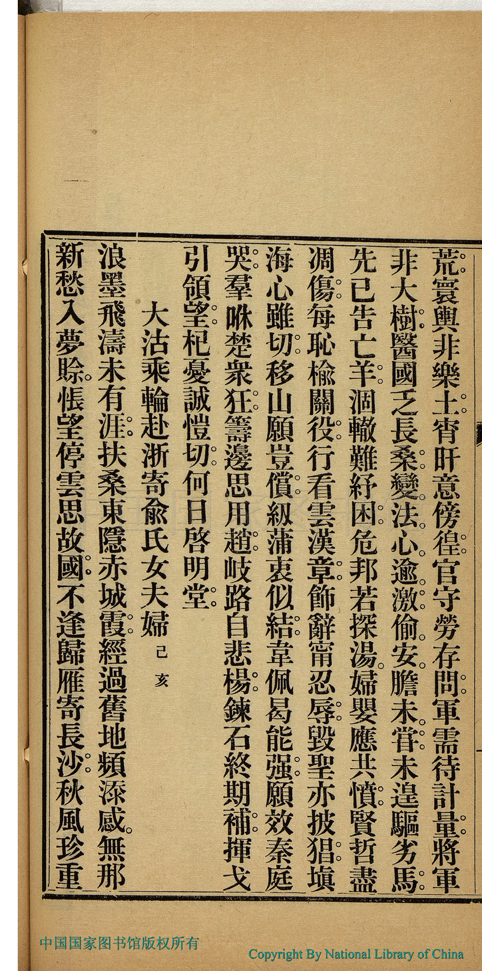 荒寰輿非樂土宵旰意傍徨官守勞存問軍需待計量將軍
非大樹醫國乏長桑變法心逾激偷安膽未嘗未遑驅劣馬
先已告亡羊涸轍難紓困危邦若探湯婦嬰應共憤賢哲盡
凋傷每恥楡關役行看雲漢章飾辭甯忍辱毀聖亦披猖塡
海心雖切移山願豈償緅蒲衷似結韋佩曷能强願效秦庭
哭羣咻楚衆狂籌邊思用趙岐路自悲楊鍊石終期補揮戈
引領望杞憂誠愷切何日啓明堂
大沽乘輪赴浙寄兪氏女夫婦 己亥
浪墨飛濤未有涯扶桑東隱赤城霞經過舊地頻滾感無那
新愁入夢賒悵望停雲思故國不逢歸雁寄長沙秋風珍重
中国国家图书馆版权所有
Copyright By National Library of China